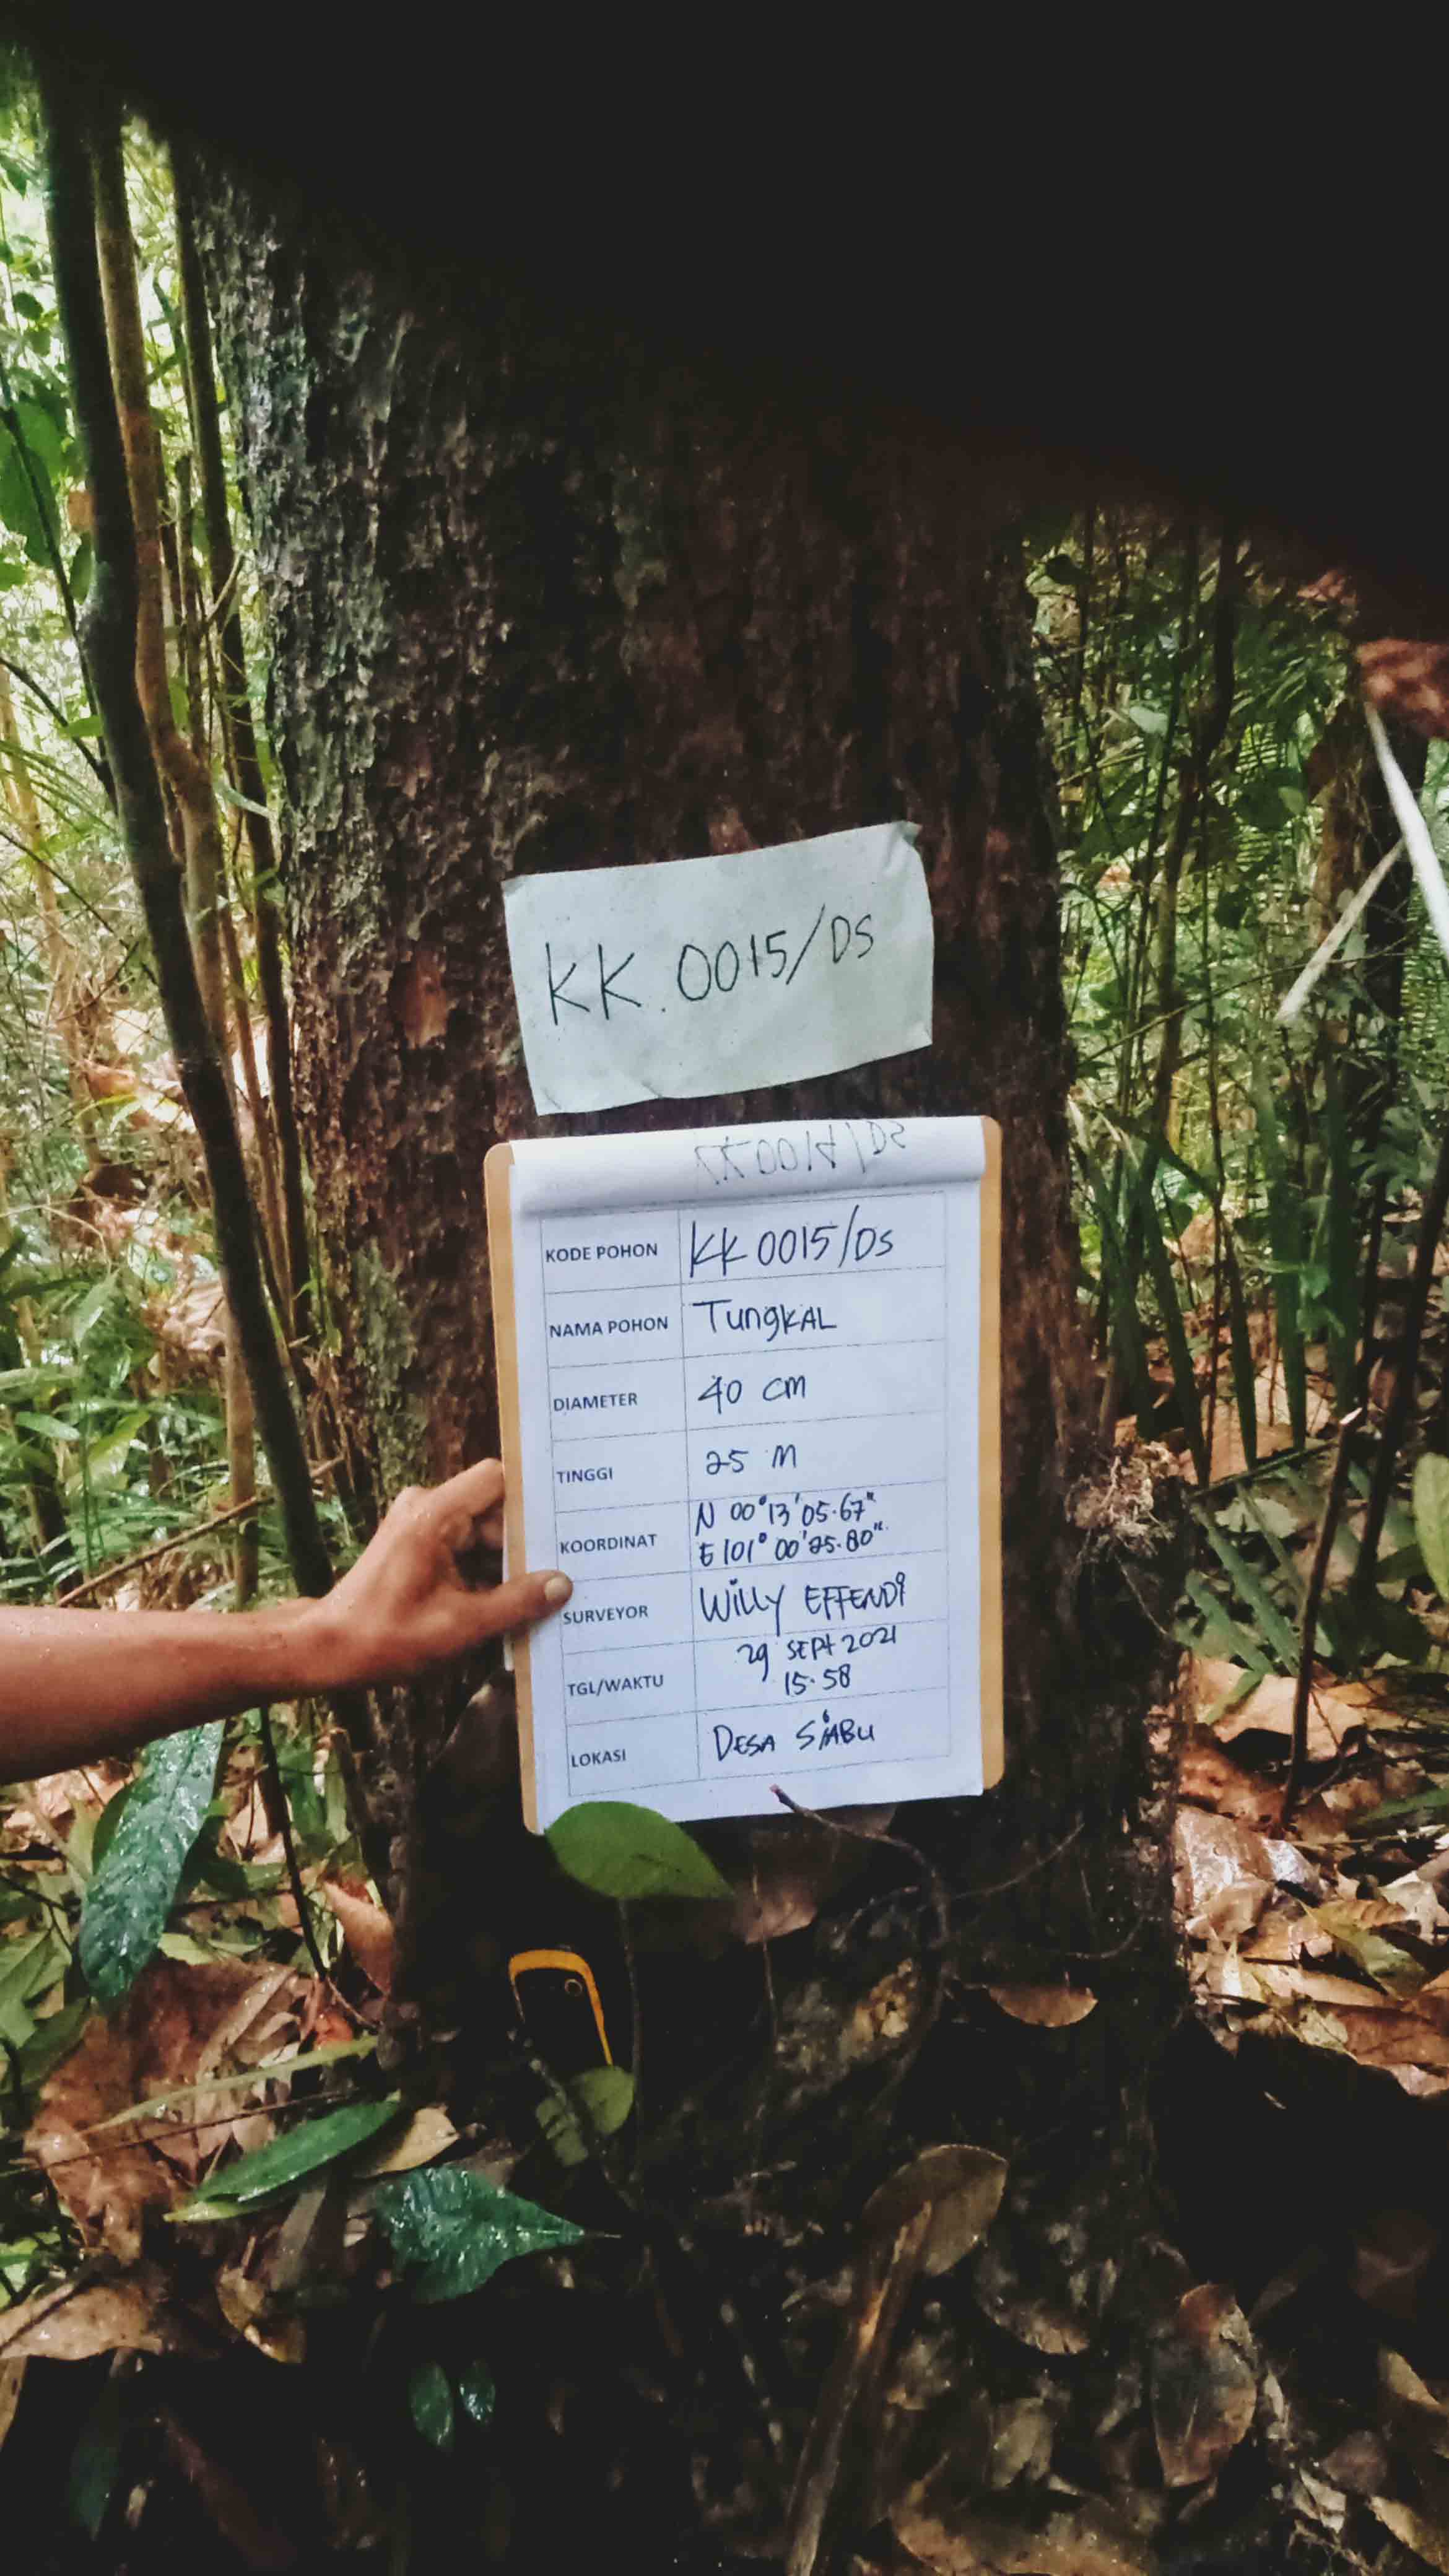 KK.0015/DS
KK0014/DS
KODE POHON KK 0015/DS
NAMA POHON TungKAL
DIAMETER 40 cm
TINGGI 25 M
KOORDINAT N 00°13'05.67"
E 101°00'25.80"
SURVEYOR WiLLY EFFENDi
TGL/WAKTU 29 SEPT 2021
15.58
LOKASI DESA SiABU